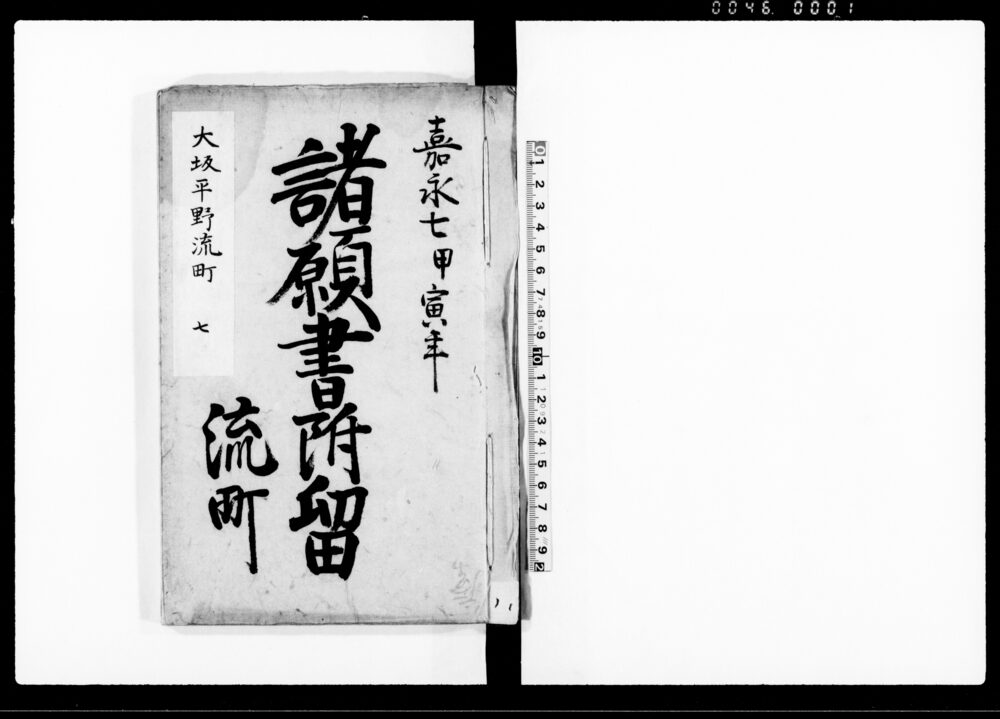 0046. 0001
嘉永七甲寅年
諸願書附留
流町
大坂平野流町 七
0 1 2 3 4 5 6 7 8 9 10 1 2 3 4 5 6 7 8 9 2